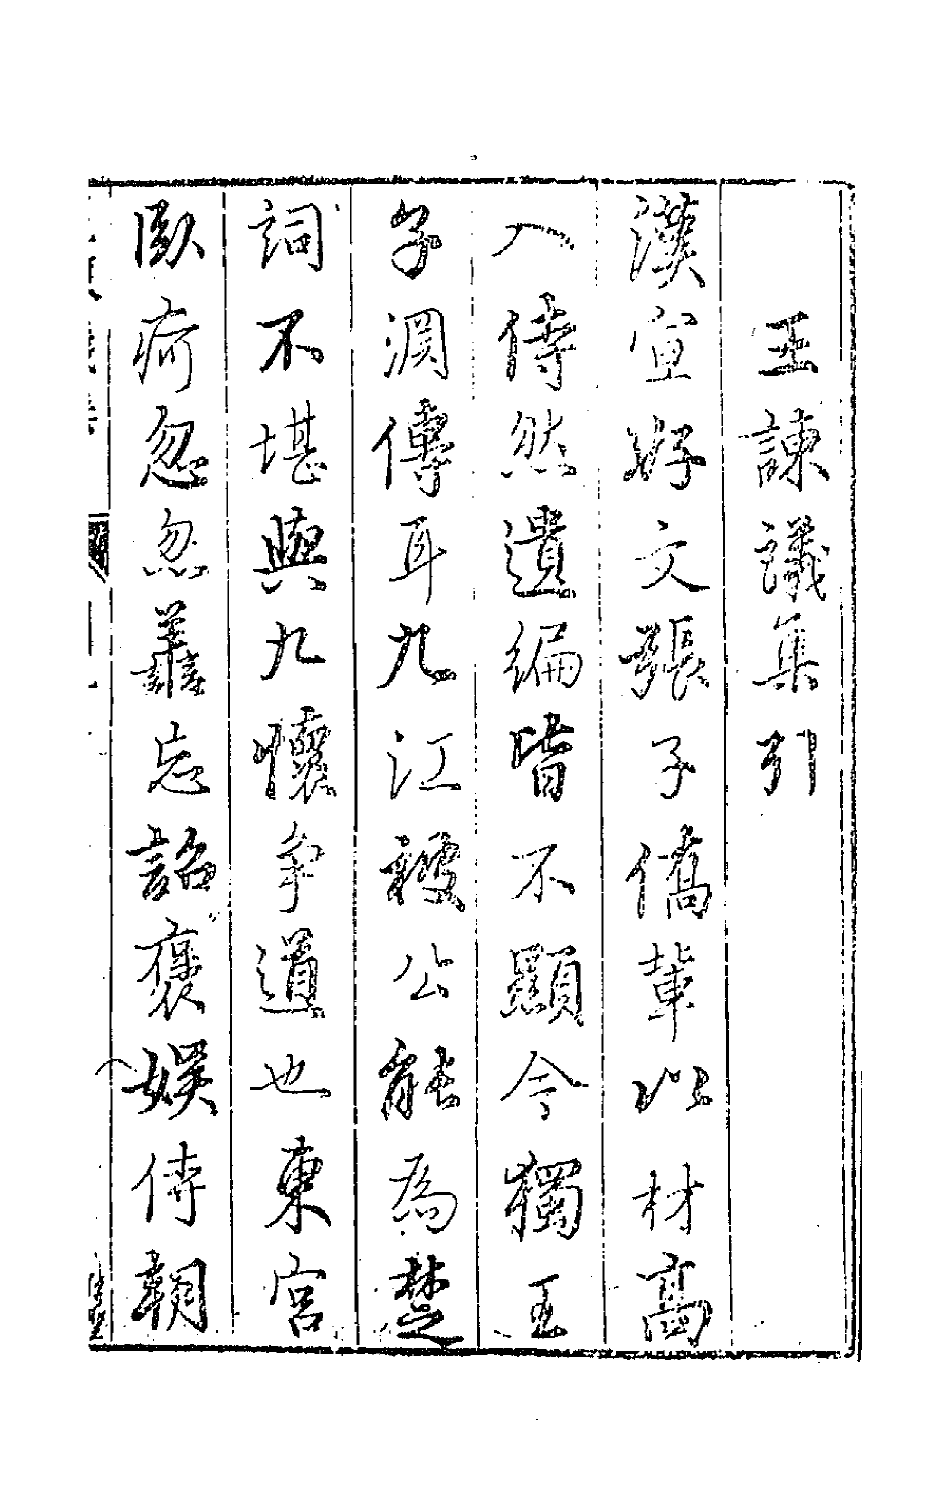 王諫議集引
漢宣好文張子僑輩以材高
入侍然遺編皆不顯今獨王
子淵傳耳九江被公能為楚
詞不堪與九懷爭道也東宮
臥痾忽忽善忘詔褒娛侍朝